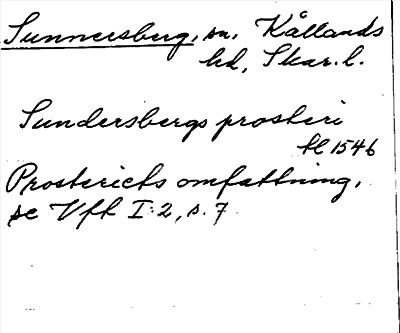 Sunnersberg, sn, Kållands
hd, Skar. l.
Sundersbergs prosteri
hl 1546
Prosteriets omfattning,
se Vfh I:2, s. 7